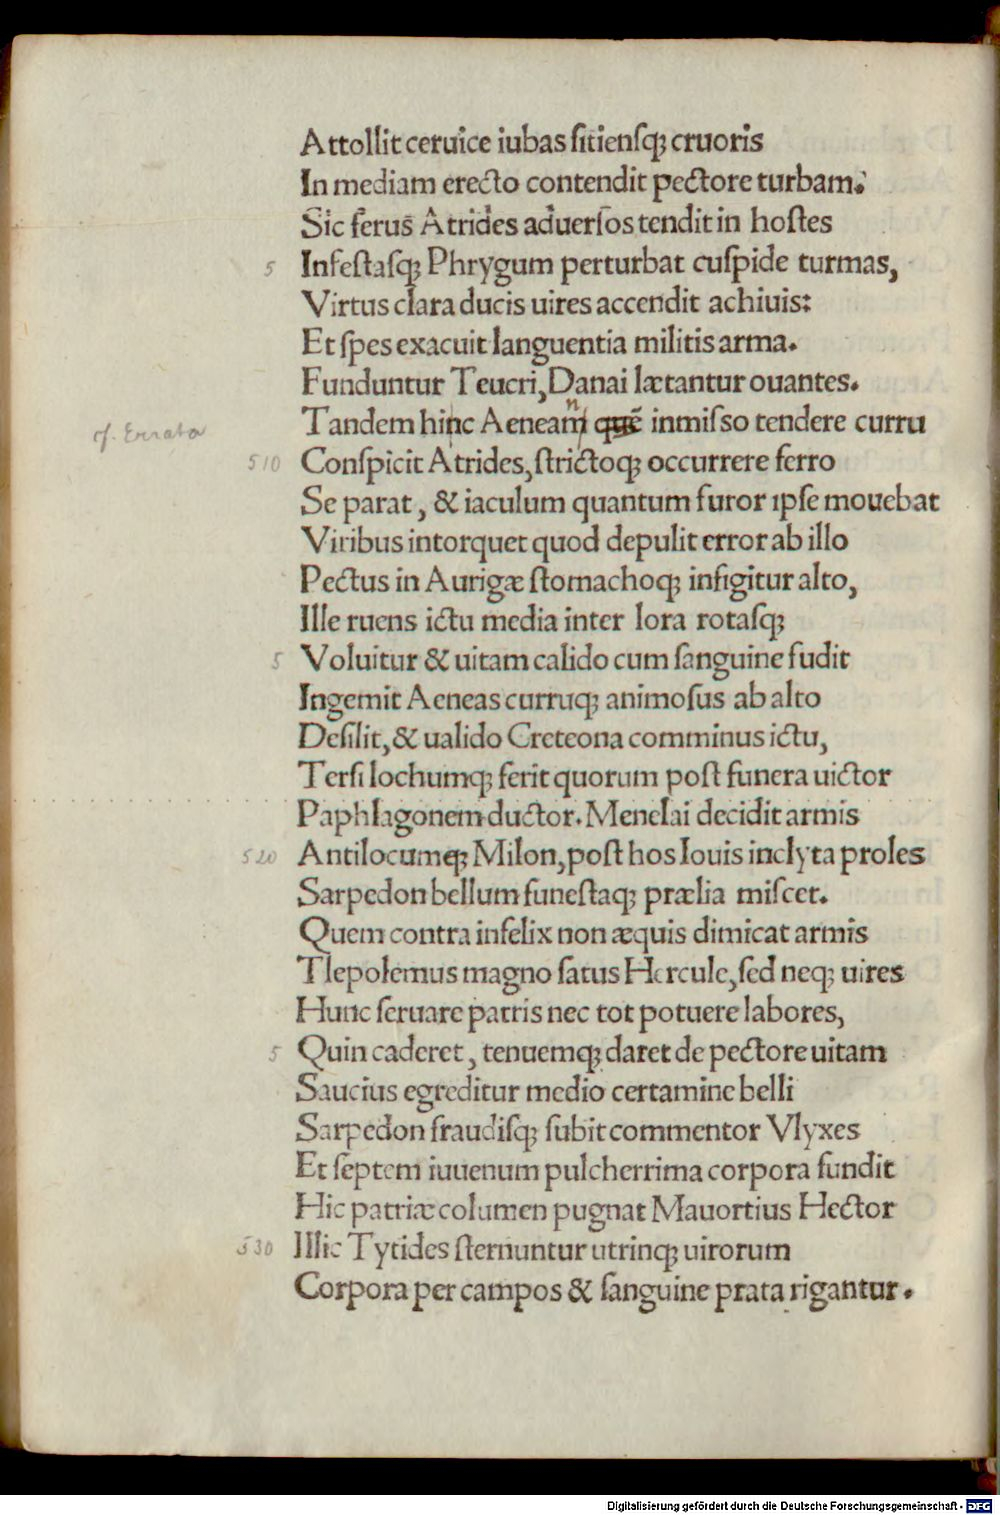 Attollit ceruice iubas ſitienſq; cruoris
In mediam erecto contendit pectore turbam.
Sic ferus Atrides aduerſos tendit in hoſtes
5 Infeſtaſq; Phrygum perturbat cuſpide turmas,
Virtus clara ducis uires accendit achiuis:
Et ſpes exacuit languentia militis arma.
Funduntur Teucri, Danai lætantur ouantes.
Tandem hinc Aeneam inmiſso tendere curru
cf. Errata
510 Conſpicit Atrides, ſtrictoq; occurrere ferro
Se parat, & iaculum quantum furor ipſe mouebat
Viribus intorquet quod depulit error ab illo
Pectus in Aurigæ ſtomachoq; infigitur alto,
Ille ruens ictu media inter lora rotaſq;
5 Voluitur & uitam calido cum ſanguine fudit
Ingemit Aeneas curruq; animoſus ab alto
Deſilit, & ualido Creteona comminus ictu,
Terſilochumq; ferit quorum poſt funera uictor
Paphlagonem ductor. Menelai decidit armis
520 Antilocumq; Milon, poſt hos Iouis inclyta proles
Sarpedon bellum funeſtaq; prælia miſcet.
Quem contra infelix non æquis dimicat armis
Tlepolemus magno ſatus Hercule, ſed neq; uires
Hunc ſeruare patris nec tot potuere labores,
5 Quin caderet, tenuemq; daret de pectore uitam
Saucius egreditur medio certamine belli
Sarpedon fraudiſq; ſubit commentor Vlyxes
Et ſeptem iuuenum pulcherrima corpora fundit
Hic patriæ columen pugnat Mauortius Hector
530 Illic Tytides ſternuntur utrinq; uirorum
Corpora per campos & ſanguine prata rigantur.
Digitalisierung gefördert durch die Deutsche Forschungsgemeinschaft - DFG